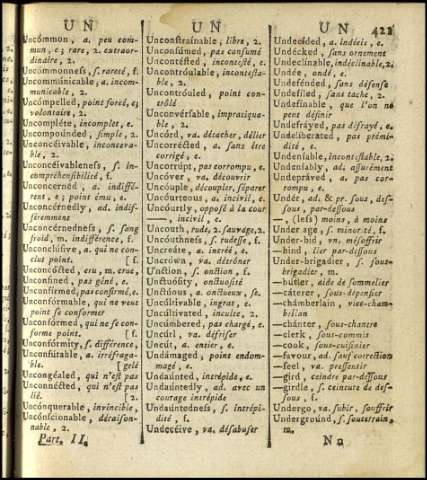 UN
UN
UN
421
Uncómmon, a. peu com-
mun, e; rare, 2. extraor-
dinaire, 2.
Uncómmonness, s. rareté, f.
Uncommúnicable, a. incom-
municable, 2.
Uncompélled, point forcé, e;
volontaire, 2.
Uncompléte, incomplet, e.
Uncompounded, simple, 2.
Unconcéivable, inconceva-
ble, 2.
Unconcéivableness, s. in-
compréhensibilité, f.
Unconcernéd, a. indiffé-
rent, e; point ému, e.
Unconcérnedly, ad. indif-
féremment
Unconcérnedness, s. sang
froid, m. indifférence, f.
Unconclúsive, a. qui ne con-
clut point. [ f.
Uncóncocted, cru, m. crue,
Unconfined, pas géné, e.
Unconfirmed, pas confirmé, e.
Unconfórmable, qui ne veut
point se conformer
Unconfórmed, qui ne se con-
forme point. [ f.
Unconfórmity, s. différence,
Unconfútable, a. irréfraga-
ble. [gelé
Uncongéaled, qui n'est pas
Unconnécted, qui n'est pas
lié. [2.
Uncónquerable, invincible,
Uncónscionable, déraison-
nable, 2.
Part. II.
Unconstrainable, libre, 2.
Unconsúmed, pas consumé
Uncontésted, incontesté, e.
Uncontróulable, incontesta-
ble, 2.
Uncontróuled, point con-
trôlé
Unconvérsable, impratiqua-
ble, 2.
Uncórd, va. détacher, délier
Uncorrécted, a. sans être
corrigé, e.
Uncorrúpt, pas corrompu, e.
Uncóver, va. découvrir
Uncóuple, découpler, séparer
Uncóurteous, a. incivil, e.
Uncóurtly, opposé à la cour
—, incivil, e.
Uncouth, rude, 2. sauvage, 2.
Uncóuthness, s. rudesse, f.
Uncreáte, a. incréé, e.
Uncrówn, va. détrôner
U'nction, s. onction, f.
Unctuósity, onctuosité
U'nctuous, a. onctueux, se.
Uncúltivable, ingrat, e.
Uncúltivated, inculte, 2.
Uncúmbered, pas chargé, e.
Uncúrl, va. défriser
Uncút, a. entier, e.
Undámaged, point endom-
magé, e.
Undaunted, intrépide, e.
Undáuntedly, ad. avec un
courage intrépide
Undáuntedness, s. intrépi-
dité, f.
Undecéive, va. désabuser
Undecided, a. indécis, e.
Undécked, sans ornement
Undeclinable, indéclinable, 2.
Undée, ondé, e.
Undefénded, sans défense
Undefiled, sans tache, 2.
Undefinable, que l'on ne
peut définir
Undefráyed, pas défrayé, e.
Undelíberated, pas prémé-
dité, e.
Undeníable, incontestable, 2.
Undeníably, ad. assurément
Undepráved, a. pas cor-
rompu, e.
Undér, ad. & pr. sous, des-
sous, par-dessous
—, (less) moins, à moins
Undér age, s. minorité, f.
Under-bid, vn. mésoffrir
—bind, lier par-dessous
Under-brigadier, s. sous-
brigadier, m.
—bútler, aide de sommelier
—cáterer, sous-dépensier
—chámberlain, vice-cham-
bellan
—chánter, sous-chantre
—clerk, sous-commis
—cook, sous-cuisinier
—favour, ad. sauf correction
—feel, va. pressentir
—gird, ceindre par-dessous
—girdle, s. ceinture de des-
sous, f.
Undergo, va. subir, souffrir
Underground, s. souterrain,
m.
N n